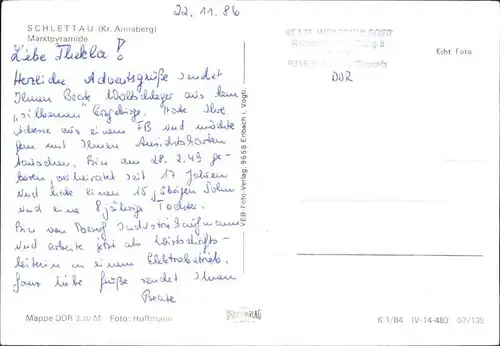 22.11.86
SCHLETTAU (Kr. Annaberg)
Marktpyramide
Liebe Thekla!
Herzliche Adventsgrüße sendet
Ihnen Beate Woltschleger aus dem
"silbernen" Erzgebirge. Habe Ihre
Adresse aus einem FB und möchte
gern mit Ihnen Ansichtskarten
tauschen. Bin am 28.2.49 ge-
boren, verheiratet seit 17 Jahren
und habe einen 15 jährigen Sohn
und eine 8 jährige Tochter.
Bin von Beruf Industriekaufmann
und arbeite jetzt als Wirtschafts-
leiterin in einem Elektrobetrieb.
Ganz liebe Grüße sendet Ihnen
Beate
Mappe DDR 3,20 M Foto: Hoffmann
VEB-Foto-Verlag, 9658 Erlbach i. Vogtl.
BEATE WOLTSCHLEGER
DDR
Echt Foto
K 1/84 IV-14-483 07/139